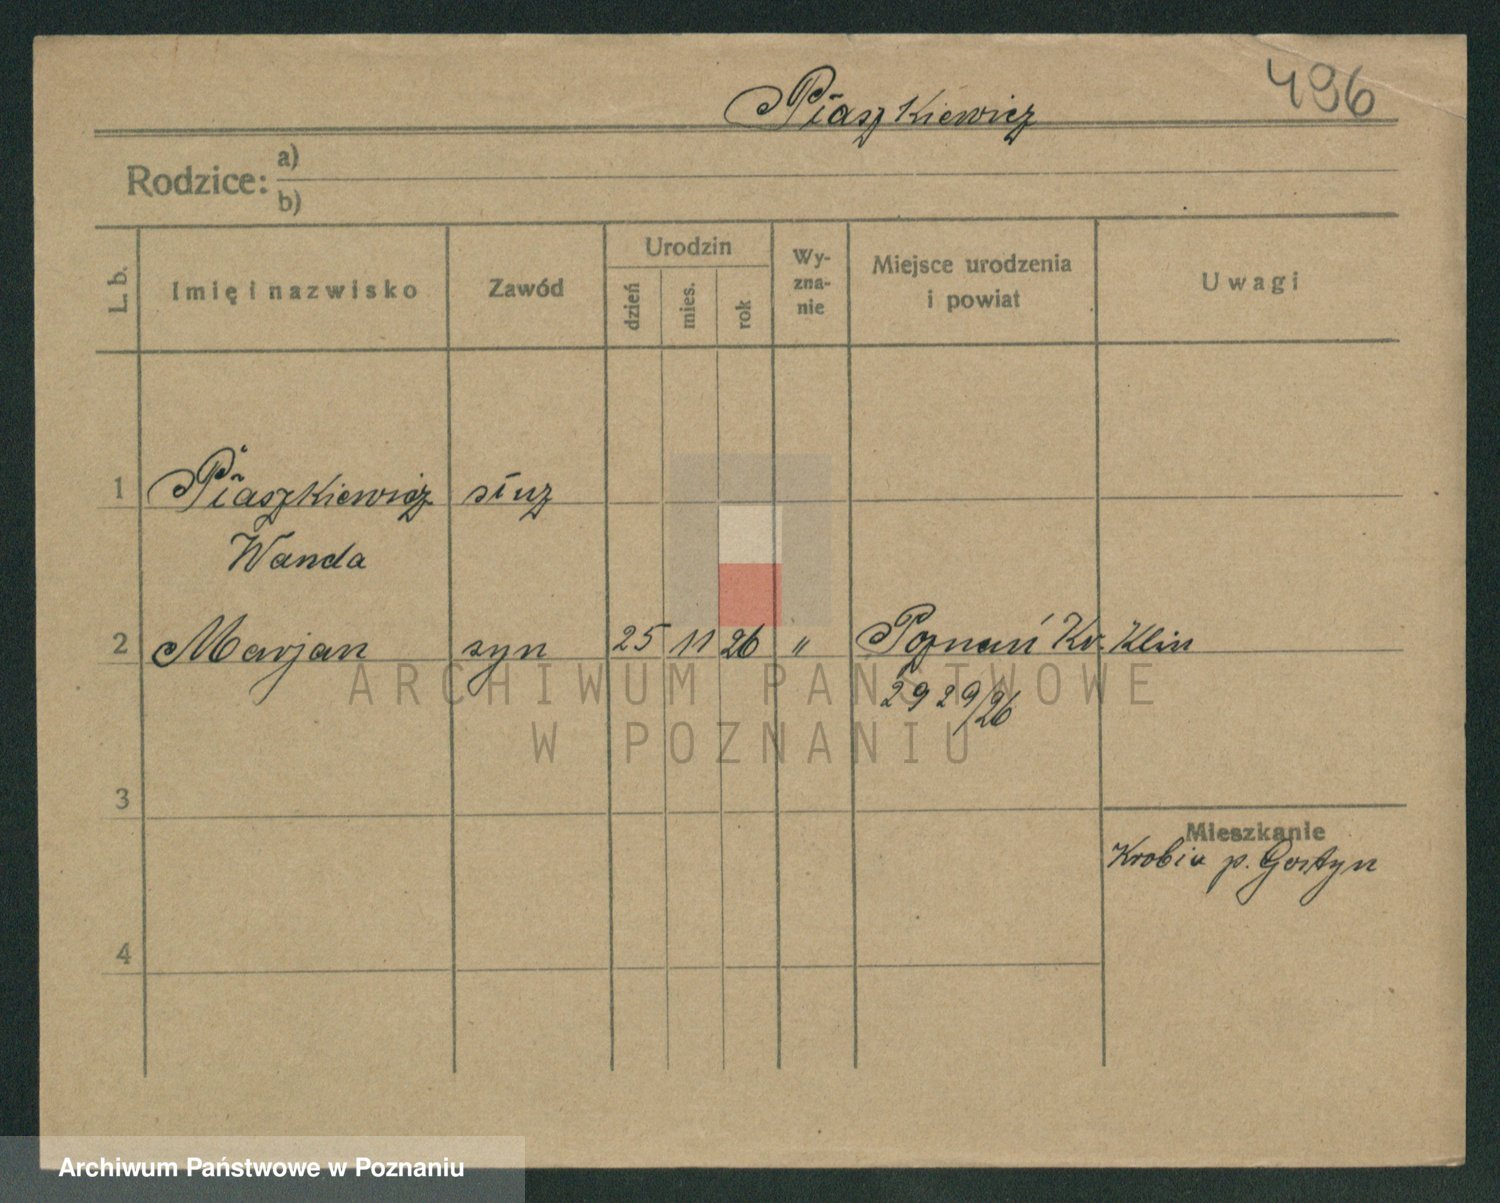 496
Piaszkiewicz
Rodzice:
a)
b)
L. b.
Imię i nazwisko
Zawód
Urodzin
dzień
mies.
rok
Wy-
zna-
nie
Miejsce urodzenia
i powiat
Uwagi
1 Piaszkiewicz służ
Wanda
2 Marjan syn 25 11 26 " Poznań Kr. Klin
2929/26
3
Mieszkanie
Krobia p. Gostyn
4
ARCHIWUM PAŃSTWOWE
W POZNANIU
Archiwum Państwowe w Poznaniu